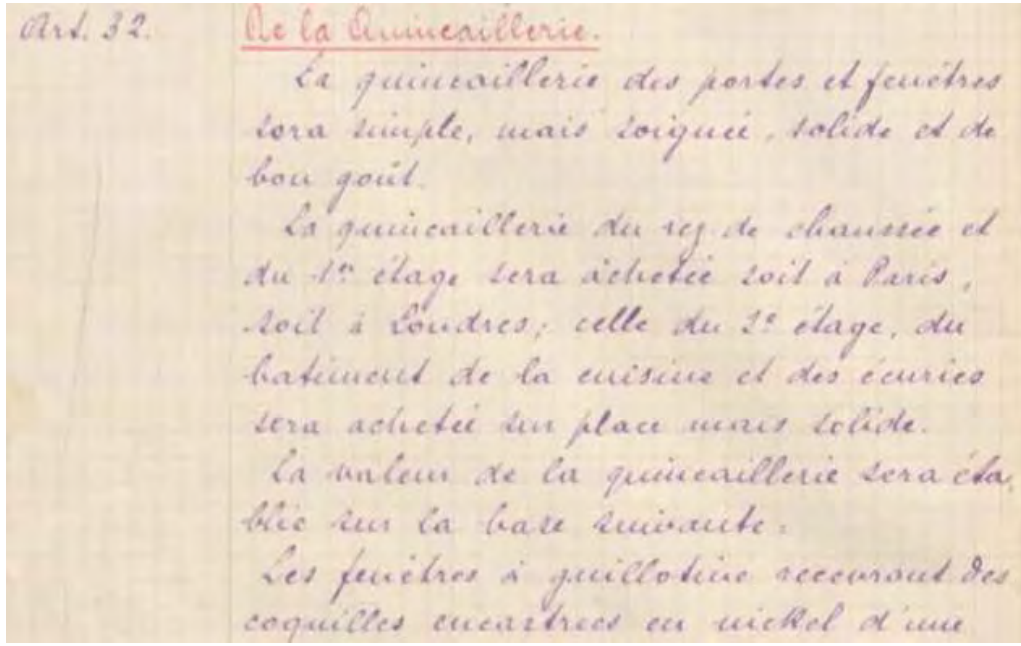 Art. 32. De la Quincaillerie.
La quincaillerie des portes et fenêtres
sera simple, mais soignée, solide et de
bon goût.
La quincaillerie du rez de chaussée et
du 1er étage sera achetée soit à Paris,
soit à Londres; celle du 2e étage, du
batiment de la cuisine et des écuries
sera achetée sur place mais solide.
La valeur de la quincaillerie sera éta-
blie sur la base suivante:
Les fenêtres à guillotine recevront des
coquilles encastrees en nickel d'une